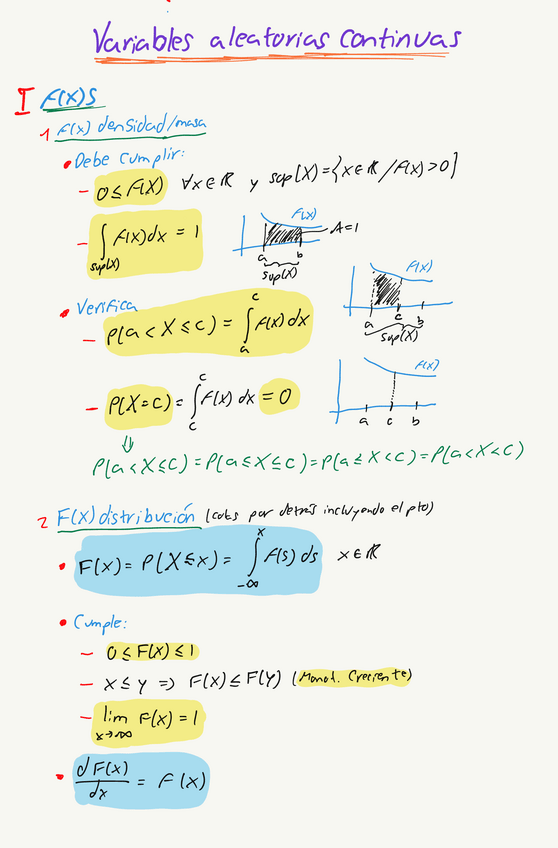 Variables aleatorias continuas
I F(x)s
1 f(x) densidad/masa
• Debe cumplir:
– 0 ≤ f(x) ∀x ∈ ℝ y sop(X) = {x ∈ ℝ / f(x) > 0}
– ∫sup(X) f(x) dx = 1
f(x)
A=1
a b
sup(X)
• Verifica
– P(a < X ≤ c) = ∫_a^c f(x) dx
f(x)
a c b
sup(X)
– P(X=c) = ∫_c^c f(x) dx = 0
f(x)
a c b
⇓
P(a<X≤c) = P(a≤X≤c) = P(a≤X<c) = P(a<X<c)
2 F(X) distribución ( por detrás incluyendo el pto)
• F(x) = P(X ≤ x) = ∫_{-∞}^x f(s) ds x ∈ ℝ
• Cumple:
– 0 ≤ F(x) ≤ 1
– x ≤ y => F(x) ≤ F(y) (Monot. Creciente)
– lim x→∞ F(x) = 1
• dF(x)/dx = f(x)